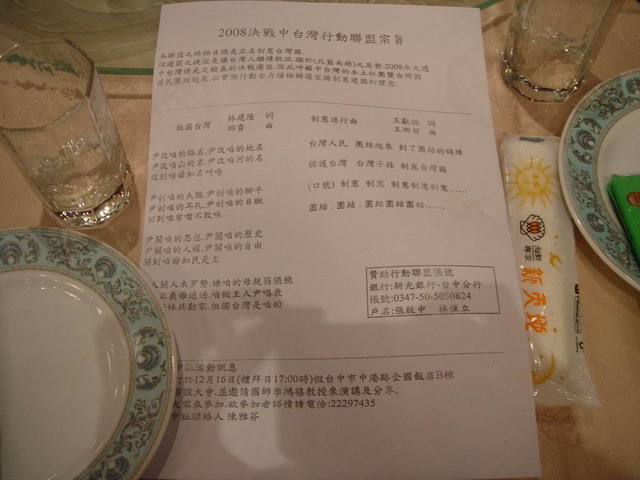 2008決戰中台灣行動聯盟宗旨
本聯盟之終極目標是正名制憲台灣國.
但建國之捷徑是讓台灣人繼續執政.鑑於(北藍南綠)之局勢.2008年大選
中台灣將是定輸贏的決戰選區.因此呼籲中台灣的本土社團暨台灣國
國民團結起來.以實際行動全力積極輔選宣揚制憲建國的理念.
祖國台灣 林建隆 詞
邱晉 曲
尹改咱的路名.尹改咱的地名
尹改咱的山名.尹改咱河的名
改到咱毋知名叫啥
尹創咱的大腦.尹創咱的腳手
尹創咱的耳孔.尹創咱的目睭
創到咱有嘴不敢咻
尹關咱的思想.尹關咱的歷史
尹關咱的人權.尹關咱的自由
關到咱毋知民是主
制憲進行曲 王獻極 詞
王明哲 曲
台灣人民 團結起來 到了團結的時陣
保護台灣 台灣子孫 制憲台灣國
(口號) 制憲 制憲 制憲制憲制憲......
團結.團結.團結團結團結......
贊助行動聯盟帳號
銀行:新光銀行-台中分行
帳號:0347-50-5050824
戶名:張啟中 林恆立
中社活動訊息
於12月16日(禮拜日17:00時)假台中市中港路全國飯店B棟
聯誼大會.並邀請國師李鴻禧教授來演講及分享.
大家來參加.欲參加者詳情請電洽:22297435
中社聯絡人 陳雅芬
海鮮
專家
新天地